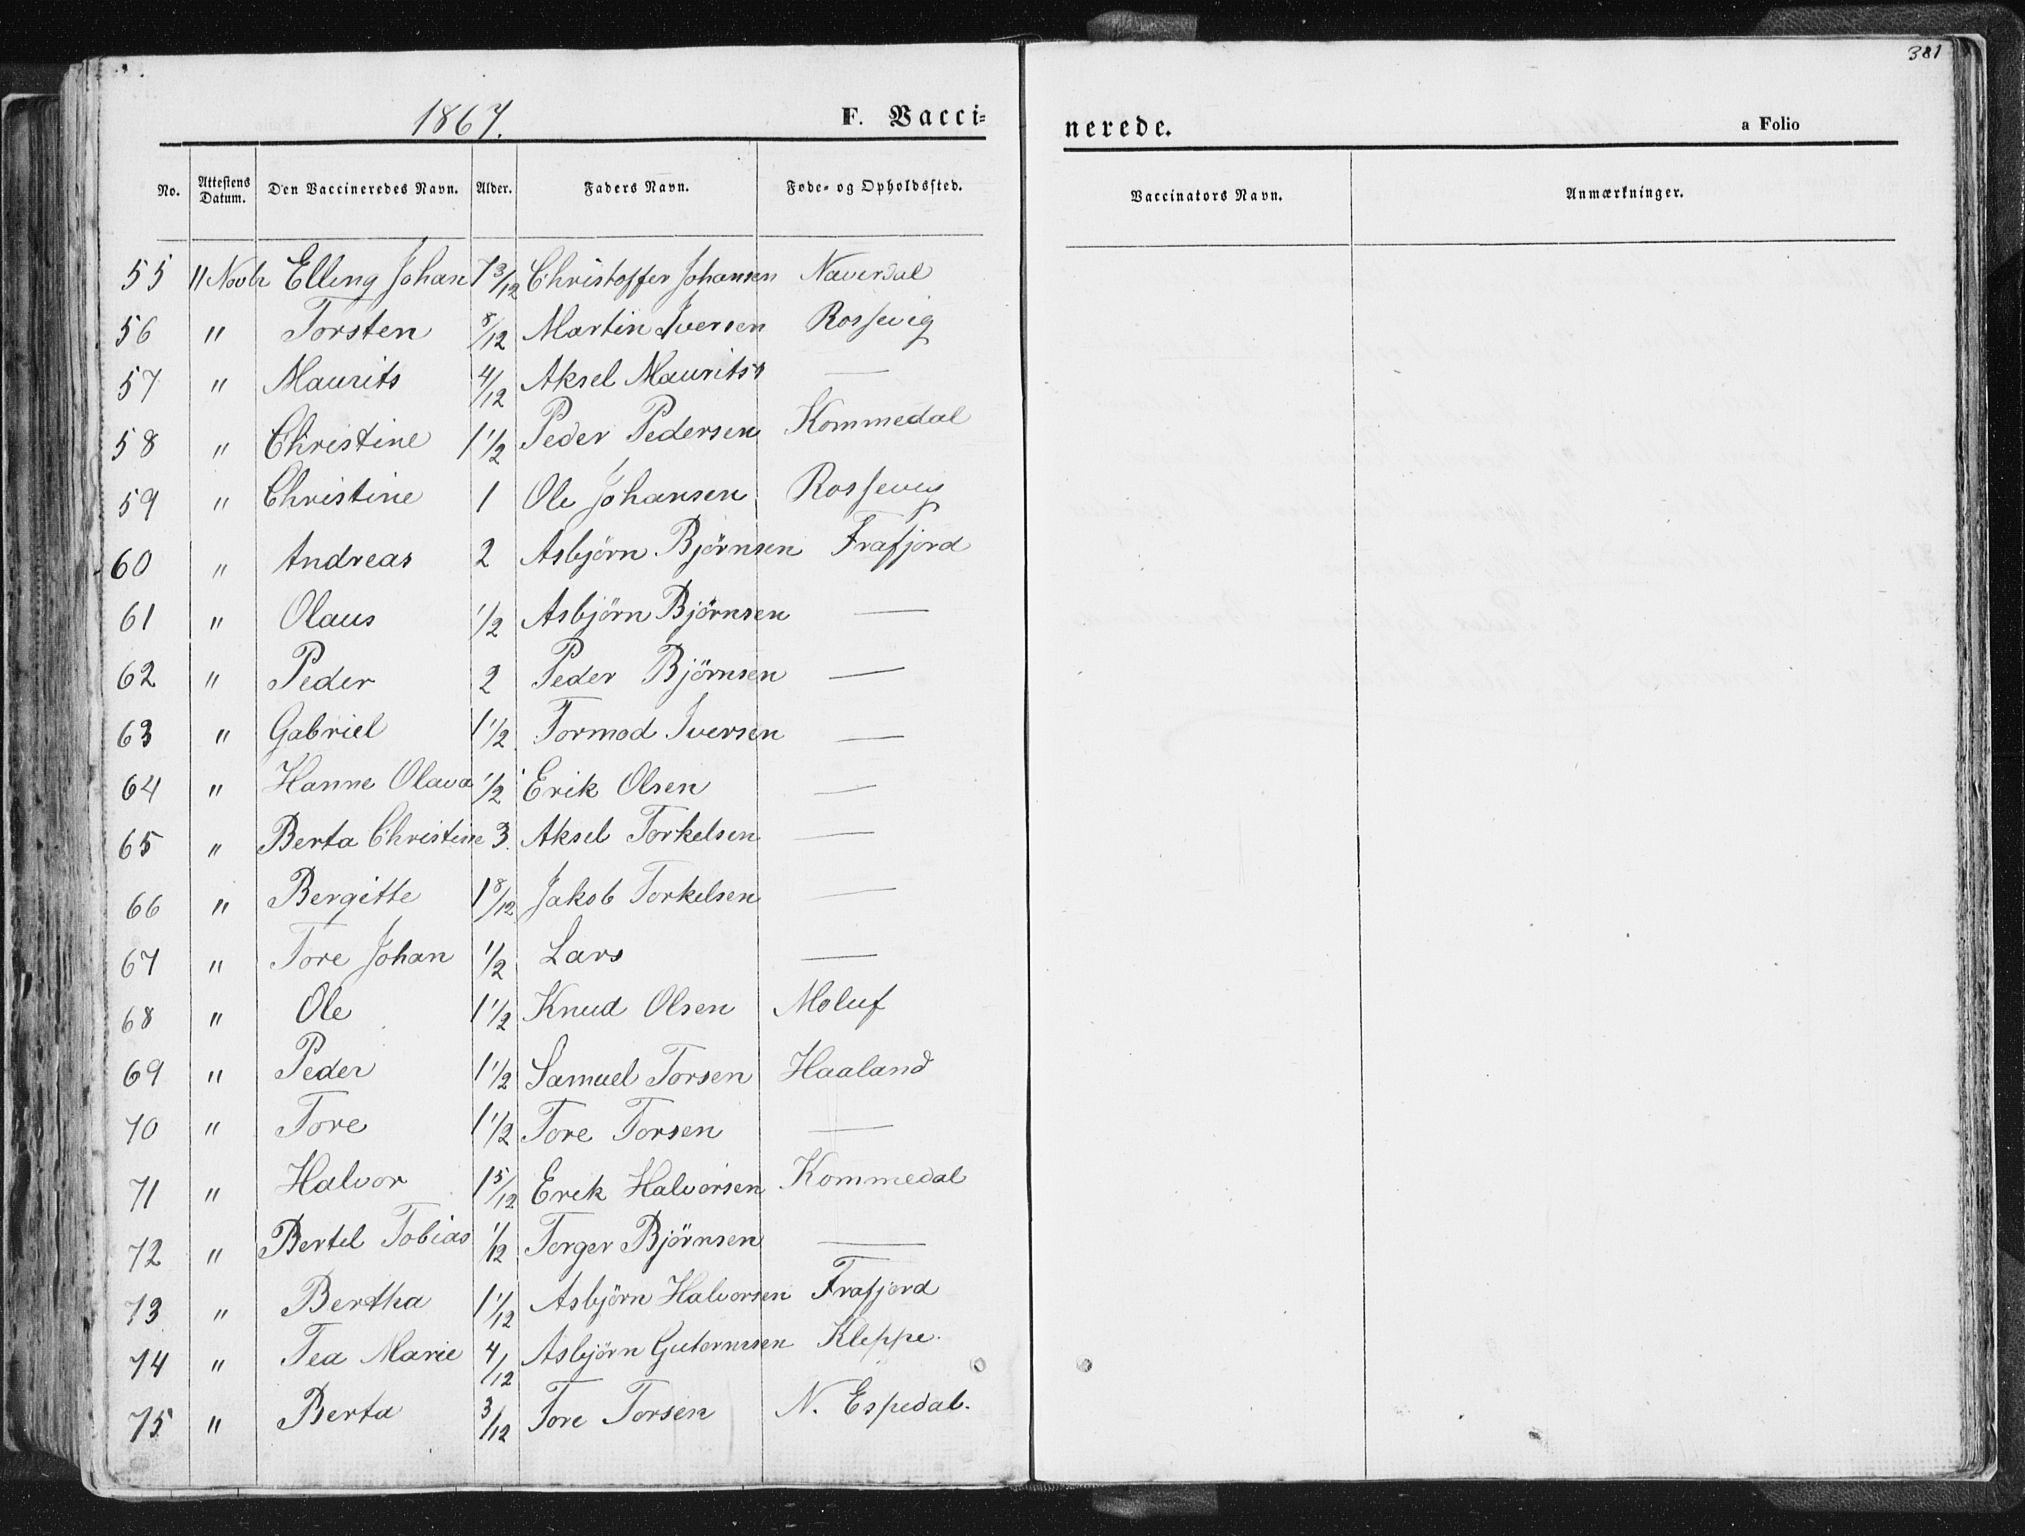 381
1867. F. Vacci= nerede. a Folio
No. Attestens Datum. Den Vaccineredes Navn. Alder. Faders Navn. Føde- og Opholdssted. Vaccinators Navn. Anmærkninger.
55 11 Novbr Elling Johan 7 3/12 Christoffer Johansen Naverdal
56 " Torsten 8/12 Martin Iversen Rossevig
57 " Maurits 4/12 Aksel Maurits —
58 " Christine 1 1/2 Peder Pedersen Kommedal
59 " Christine 1 Ole Johansen Rossevig
60 " Andreas 2 Asbjörn Björnsen Frafjord
61 " Olaus 1/2 Asbjörn Björnsen —
62 " Peder 2 Peder Björnsen —
63 " Gabriel 1 1/2 Tormod Iversen —
64 " Hanne Olava 1/2 Erik Olsen —
65 " Berta Christine 3 Aksel Torkelsen —
66 " Bergitte 1 8/12 Jakob Torkelsen —
67 " Tore Johan 1/2 Lars —
68 " Ole 1 1/2 Knud Olsen Moluf
69 " Peder 1 1/2 Samuel Torsen Haaland
70 " Tore 1 1/2 Tore Torsen —
71 " Halvor 1 5/12 Erik Halvorsen Kommedal
72 " Bertel Tobias 1/12 Torger Björnsen —
73 " Bertha 1 1/12 Asbjörn Halvorsen Frafjord
74 " Tea Marie 4/12 Asbjörn Gutormsen Kleppe.
75 " Berta 3/12 Tore Torsen N. Espedal.